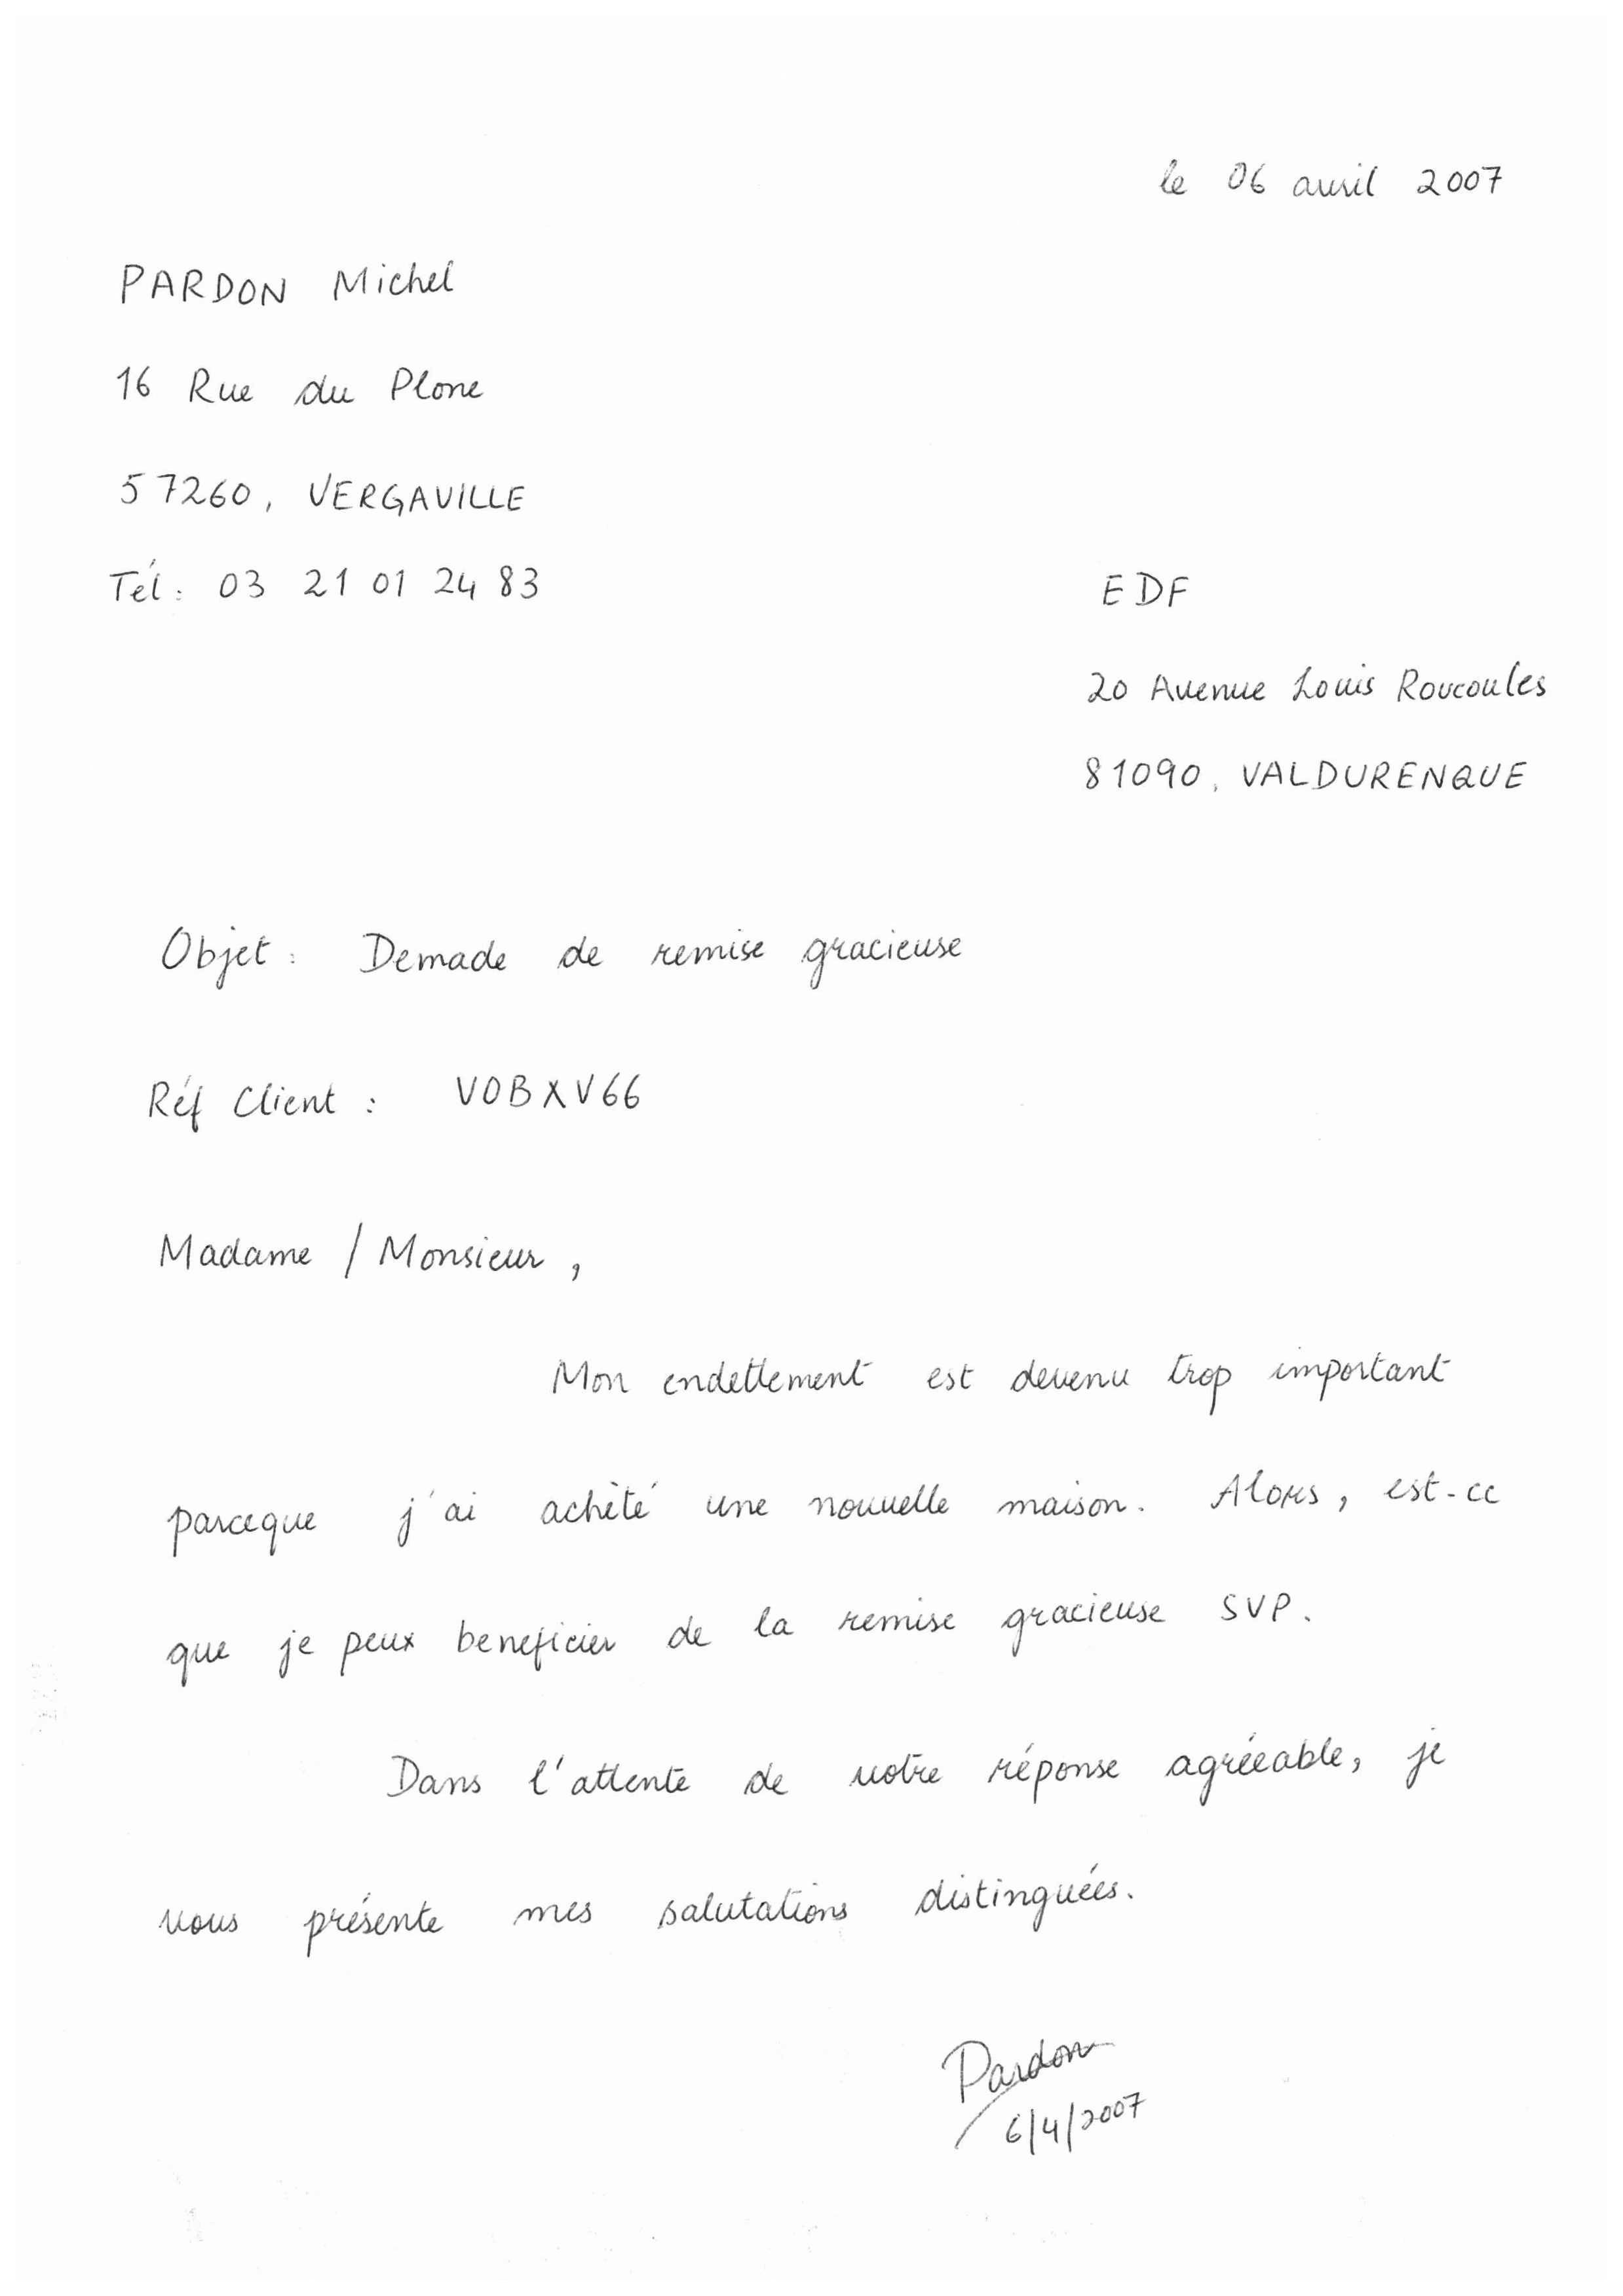 le 06 avril 2007
PARDON Michel
16 Rue du Plone
57260, VERGAVILLE
Tél : 03 21 01 24 83
EDF
20 Avenue Louis Roucoules
81090, VALDURENQUE
Objet : Demade de remise gracieuse
Réf Client : VOBXV66
Madame / Monsieur,
Mon endettement est devenu trop important
parceque j'ai achèté une nouvelle maison. Alors, est-ce
que je peux beneficier de la remise gracieuse SVP.
Dans l'attente de votre réponse agréeable, je
vous présente mes salutations distinguées.
Pardon
6/4/2007